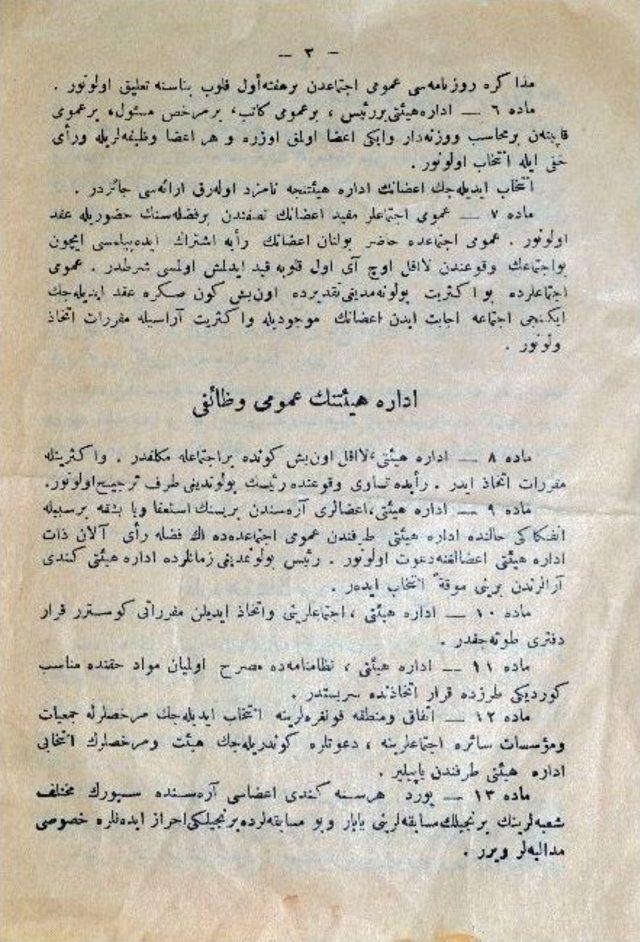 — ٣ —
مذاكره روزنامه‌سی عمومی اجتماعدن برهفته‌اول قلوب بناسنه تعليق اولونور .
ماده ٦ — اداره‌هيئتی‌بررئيس ، برعمومی كاتب، برمرخص مسئول، برعمومی
قاپيتەن برمحاسب ووزنه‌دار وايكی اعضا اولمق اوزره و هر اعضا وظيفه‌لريله ورأی
خفی ايله انتخاب اولونور.
انتخاب ايديله‌جك اعضانك اداره هيئتنجه نامزد اوله‌رق ارائه‌سی جائزدر .
ماده ٧ — عمومی اجتماعلر مقيد اعضانك نصفندن برفضله‌سنك حضوريله عقد
اولونور . عمومی اجتماعده حاضر بولنان اعضانك رأيه اشتراك ايده‌بيلمسی ايچون
بواجتماعك وقوعندن لااقل اوچ آی اول قلوبه قيد ايدلمش اولمسی شرطدر . عمومی
اجتماعلرده بو اكثريت بولونه‌مدينی‌تقديرده اون‌بش كون صكره عقد ايديله‌جك
ايكنجی اجتماعه اجابت ايدن اعضانك موجوديله واكثريت آراسيله مقررات اتخاذ
ولونور .
اداره هيئتنك عمومی وظائفی
ماده ٨ — اداره هيئتی، لااقل اون‌بش كونده براجتماعله مكلفدر . واكثريتله
مقررات اتخاذ ايدر . رأيده تساوی وقوعنده رئيسك بولوندينی طرف ترجيح‌اولونور.
ماده ٩ — اداره هيئتی، اعضالری آره‌سندن برينك استعفا ويا بشقه برسببله
انفكاكی حالنده اداره هيئتی طرفندن عمومی اجتماعده‌ده اك فضله رأی آلان ذات
اداره هيئتی اعضالغنه‌دعوت اولونور . رئيس بولونمدينی زمانلرده اداره هيئتی كندی
آرالرندن برينی موقةً انتخاب ايدەر .
ماده ١٠ — اداره هيئتی ، اجتماعلرينی واتخاذ ايديلن مقرراتی كوسترر قرار
دفتری طوته‌جقدر.
ماده ١١ — اداره هيئتی ، نظامنامه‌ده مصرح اولميان مواد حقنده مناسب
كورديكی طرزده قرار اتخاذنده سربستدر .
ماده ١٢ — اتفاق ومنطقه قونغره‌لرينه انتخاب ايديله‌جك مرخصلرله جمعيات
ومؤسسات سائره اجتماعلرينه ، دعوتلره كوندريله‌جك هيئت ومرخصلرك انتخابی
اداره هيئتی طرفندن ياپيلير .
ماده ١٣ — يورد هرسنه كندی اعضاسی آره‌سنده سپورك مختلف
شعبه‌لرينك برنجيلك‌مسابقه‌لرينی ياپار وبو مسابقه‌لرده‌برنجيلكی‌احراز ايده‌نلره خصوصی
مداليه‌لر ويرر .